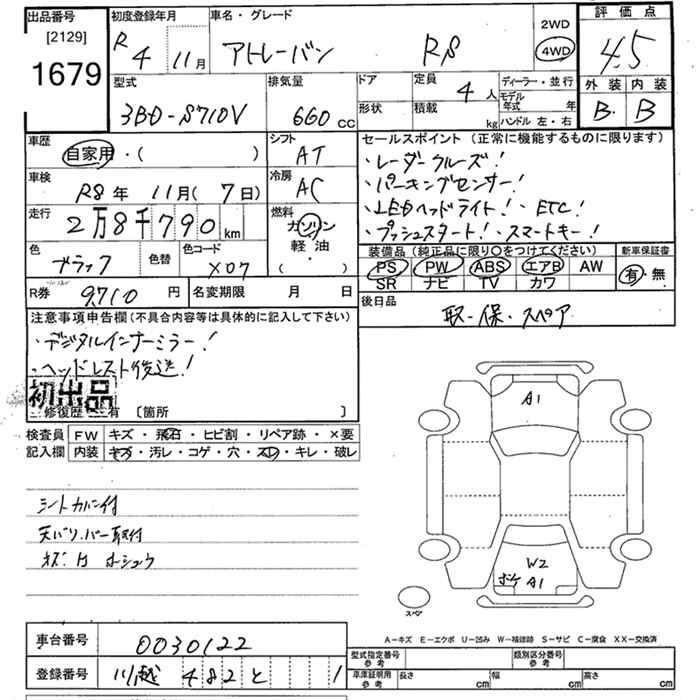 出品番号
[2129]
1679
初度登録年月
R 4 11月
車名・グレード
アトレーバン RS
2WD
4WD
評価点
4.5
外装 内装
B B
型式
3BD-S710V
排気量
660 cc
ドア
形状
定員
4人
積載
kg
ディーラー・並行
モデル年式 年
ハンドル 左・右
車歴
自家用・( )
シフト
AT
車検
R8年 11月(7日)
冷房
AC
走行
2万8千790km
燃料
ガソリン
軽油
( )
色
ブラック
色替
色コード
X07
R券
9710円
名変期限 月 日
セールスポイント (正常に機能するものに限ります)
・レーダークルーズ!
・パーキングセンサー!
・LEDヘッドライト! ・ETC!
・プッシュスタート! ・スマートキー!
装備品 (純正品に限り〇をつけてください)
PS PW ABS エアB AW
SR ナビ TV カワ
新車保証書
有・無
後日品
取・保・スペア
注意事項申告欄(不具合内容等は具体的に記入して下さい)
・デジタルインナーミラー!
・ヘッドレスト後送!
初出品
修復歴 有 〔箇所 〕
検査員記入欄
FW キズ・飛石・ヒビ割・リペア跡・×要
内装 キズ・汚レ・コゲ・穴・スレ・キレ・破レ
シートカバー付
天バリ、バー取付
A1
W2
ボケ A1
スペア
A-キズ E-エクボ U-凹み W-補修跡 S-サビ C-腐食 XX-交換済
車台番号
0030122
登録番号
川越 482 と 1
型式指定番号
参考
類別区分番号
参考
車庫証明用
参考
長さ cm
幅 cm
高さ cm